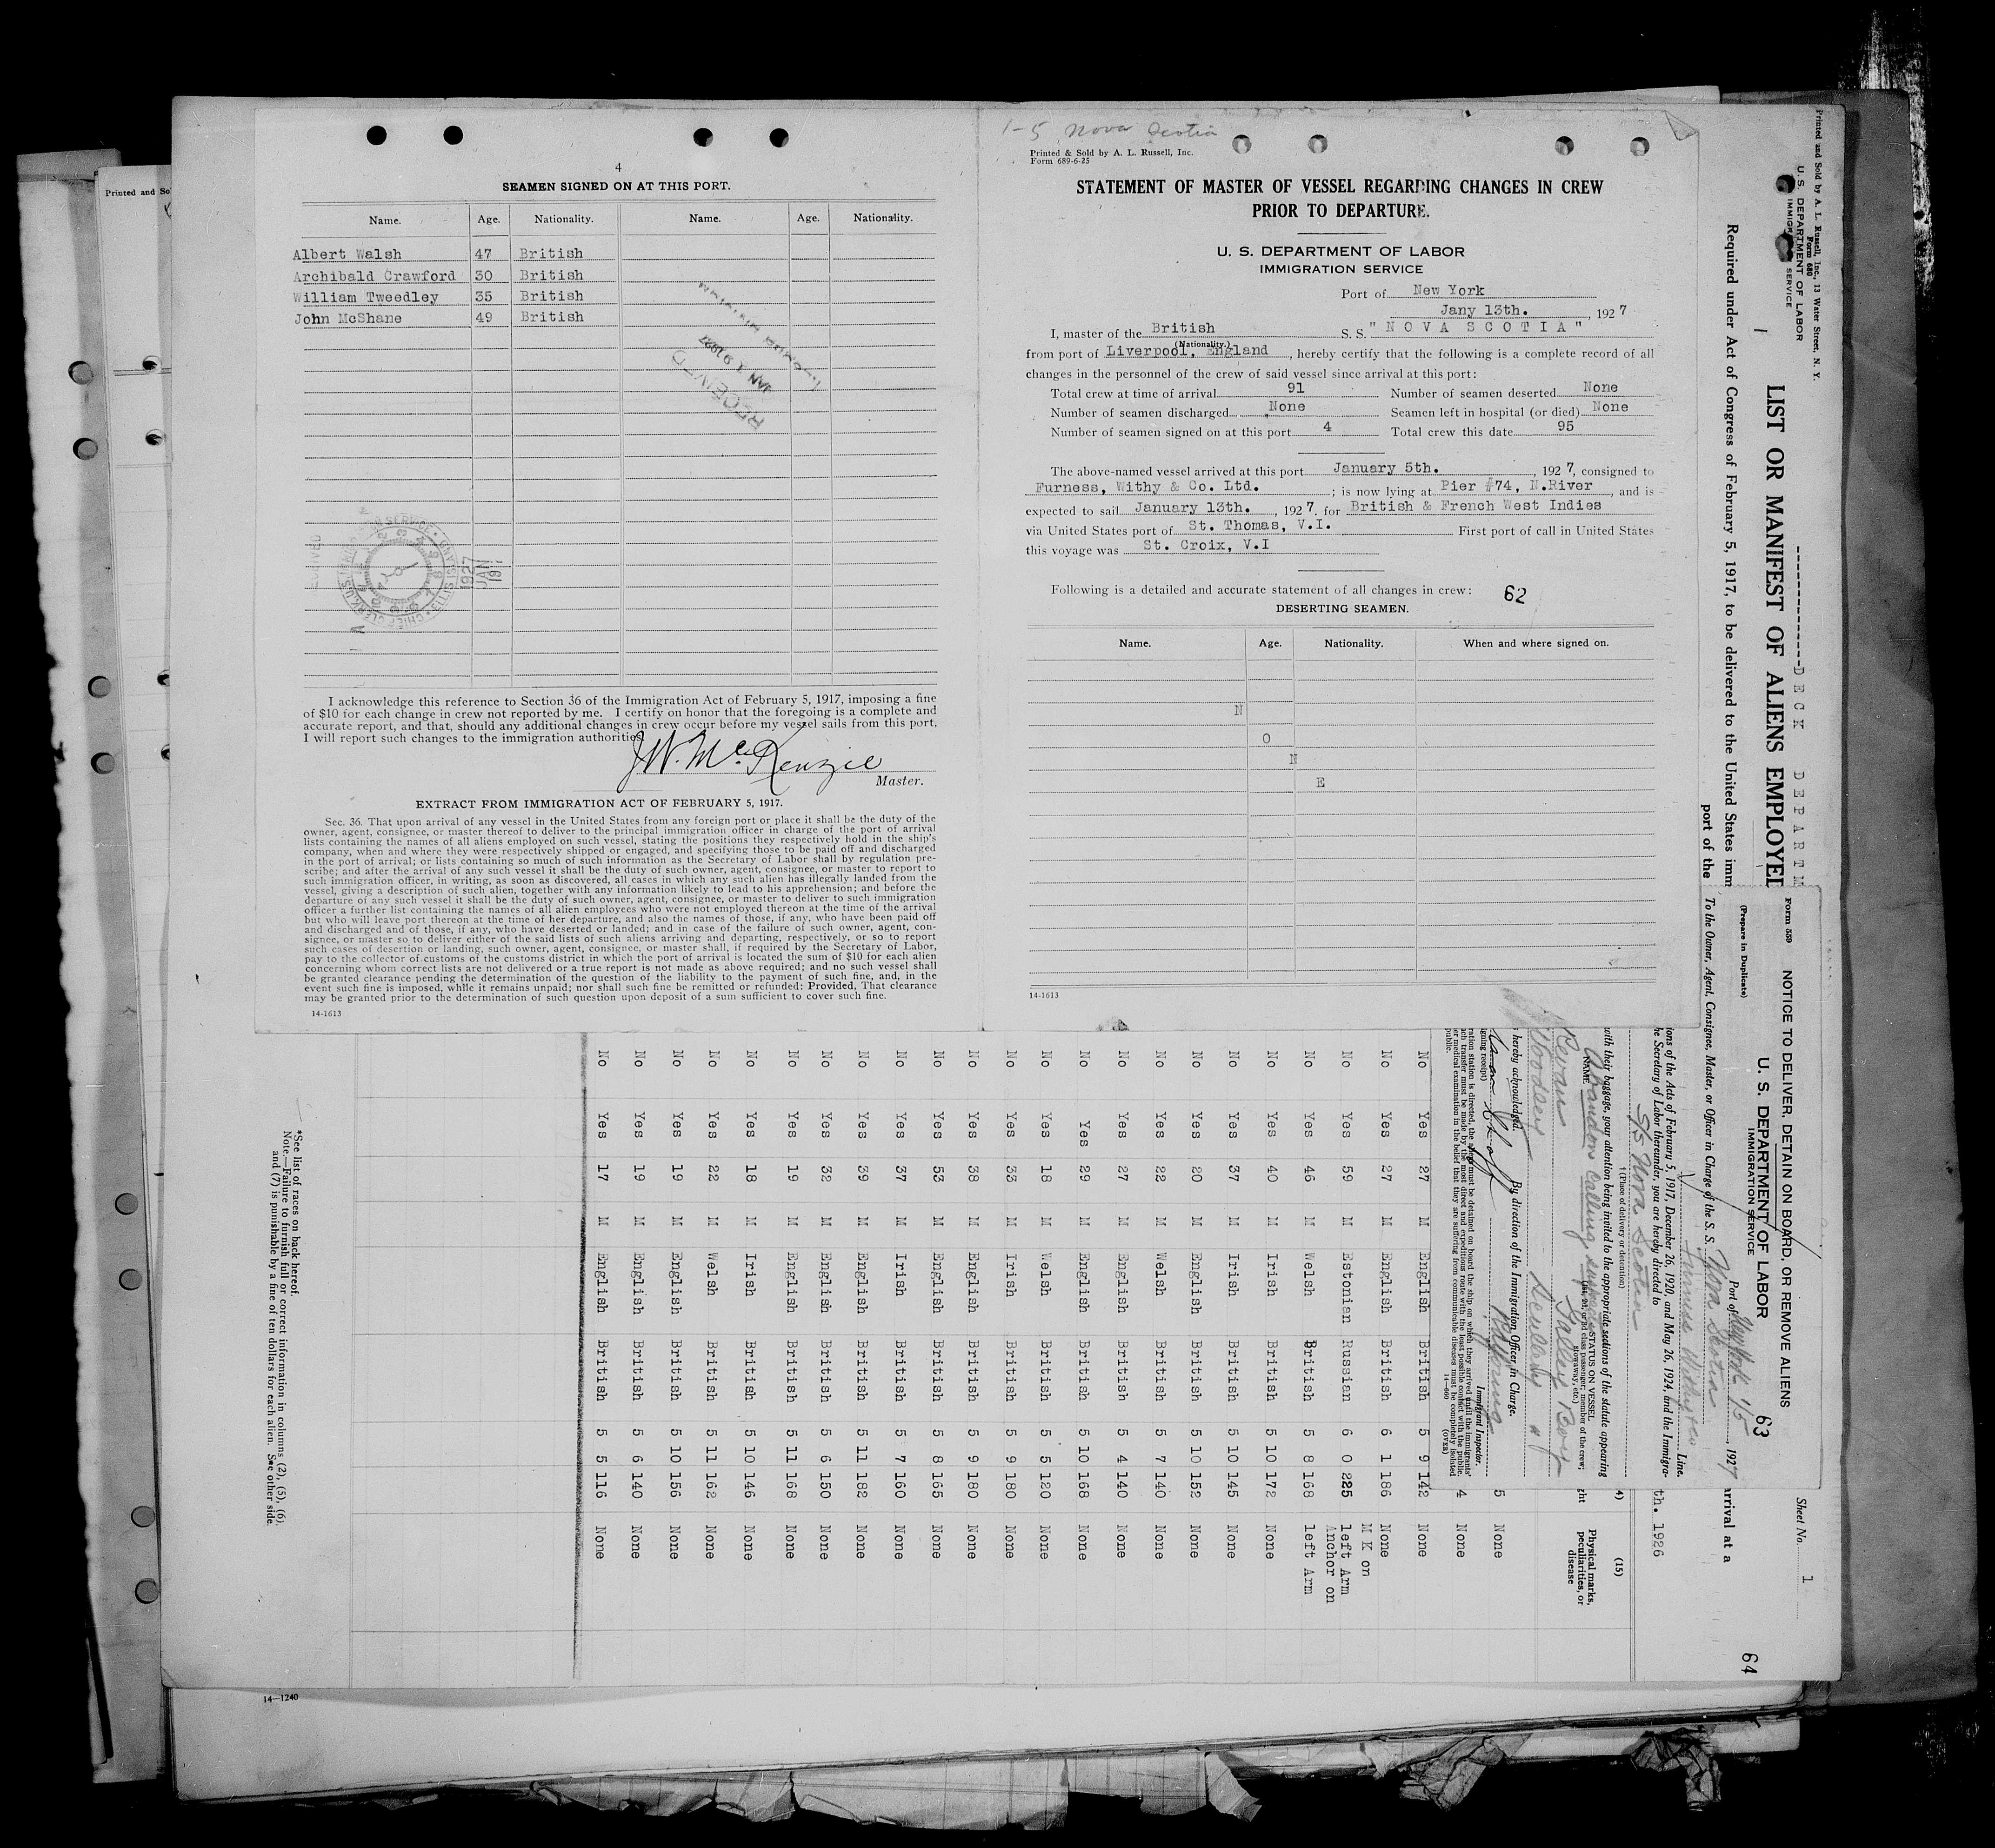 4
SEAMEN SIGNED ON AT THIS PORT.
Name. Age. Nationality. Name. Age. Nationality.
Albert Walsh 47 British
Archibald Crawford 30 British
William Tweedley 35 British
John McShane 49 British
RECEIVED
I acknowledge this reference to Section 36 of the Immigration Act of February 5, 1917, imposing a fine
of $10 for each change in crew not reported by me. I certify on honor that the foregoing is a complete and
accurate report, and that, should any additional changes in crew occur before my vessel sails from this port,
I will report such changes to the immigration authorities.
J.W. McKenzie
Master.
EXTRACT FROM IMMIGRATION ACT OF FEBRUARY 5, 1917.
Sec. 36. That upon arrival of any vessel in the United States from any foreign port or place it shall be the duty of the
owner, agent, consignee, or master thereof to deliver to the principal immigration officer in charge of the port of arrival
lists containing the names of all aliens employed on such vessel, stating the positions they respectively hold in the ship's
company, when and where they were respectively shipped or engaged, and specifying those to be paid off and discharged
in the port of arrival; or lists containing so much of such information as the Secretary of Labor shall by regulation pre-
scribe; and after the arrival of any such vessel it shall be the duty of such owner, agent, consignee, or master to report to
such immigration officer, in writing, as soon as discovered, all cases in which any such alien has illegally landed from the
vessel, giving a description of such alien, together with any information likely to lead to his apprehension; and before the
departure of any such vessel it shall be the duty of such owner, agent, consignee, or master to deliver to such immigration
officer a further list containing the names of all alien employees who were not employed thereon at the time of the arrival
but who will leave port thereon at the time of her departure, and also the names of those, if any, who have been paid off
and discharged and of those, if any, who have deserted or landed; and in case of the failure of such owner, agent, con-
signee, or master so to deliver either of the said lists of such aliens arriving and departing, respectively, or so to report
such cases of desertion or landing, such owner, agent, consignee, or master shall, if required by the Secretary of Labor,
pay to the collector of customs of the customs district in which the port of arrival is located the sum of $10 for each alien
concerning whom correct lists are not delivered or a true report is not made as above required; and no such vessel shall
be granted clearance pending the determination of the question of the liability to the payment of such fine, and, in the
event such fine is imposed, while it remains unpaid; nor shall such fine be remitted or refunded: Provided, That clearance
may be granted prior to the determination of such question upon deposit of a sum sufficient to cover such fine.
14-1613
1-5 Nova Scotia
Printed & Sold by A. L. Russell, Inc.
Form 689-6-25
STATEMENT OF MASTER OF VESSEL REGARDING CHANGES IN CREW
PRIOR TO DEPARTURE.
U. S. DEPARTMENT OF LABOR
IMMIGRATION SERVICE
Port of New York
Jany 13th., 1927
I, master of the British S. S. "NOVA SCOTIA"
(Nationality.)
from port of Liverpool, England, hereby certify that the following is a complete record of all
changes in the personnel of the crew of said vessel since arrival at this port:
Total crew at time of arrival 91 Number of seamen deserted None
Number of seamen discharged None Seamen left in hospital (or died) None
Number of seamen signed on at this port 4 Total crew this date 95
The above-named vessel arrived at this port January 5th., 1927, consigned to
Furness, Withy & Co. Ltd. ; is now lying at Pier #74, N.River, and is
expected to sail January 13th., 1927, for British & French West Indies
via United States port of St. Thomas, V.I. First port of call in United States
this voyage was St. Croix, V.I
Following is a detailed and accurate statement of all changes in crew: 62
DESERTING SEAMEN.
Name. Age. Nationality. When and where signed on.
N
O
N
E
14-1613
Printed and Sold by A. L. Russell, Inc., 13 Water Street, N. Y.
Form 680
U. S. DEPARTMENT OF LABOR
IMMIGRATION SERVICE
DECK DEPARTM
LIST OR MANIFEST OF ALIENS EMPLOYED
Required under Act of Congress of February 5, 1917, to be delivered to the United States imm
port of the
Sheet No. 1
arrival at a
th. 1926
64
Form 559
(Prepare in Duplicate)
NOTICE TO DELIVER, DETAIN ON BOARD, OR REMOVE ALIENS
63
U. S. DEPARTMENT OF LABOR
IMMIGRATION SERVICE
Port of New York 1/5, 1927
To the Owner, Agent, Consignee, Master, or Officer in Charge of the S. S. Nova Scotia
Line.
ions of the Acts of February 5, 1917, December 26, 1920, and May 26, 1924, and the Immigra-
he Secretary of Labor thereunder, you are hereby directed to
S/S Nova Scotia
† (Place of delivery or detention)
with their baggage, your attention being invited to the appropriate sections of the statute appearing
NAME STATUS ON VESSEL
Galley Boy
hereby acknowledged. By direction of the Immigration Officer in Charge.
Immigrant Inspector.
14-660 (OVER)
(15)
Physical marks, peculiarities, or disease
5 None
4 None
No Yes 27 M English British 5 9 142 None
No Yes 27 M English British 6 1 186 None
No Yes 59 M Estonian Russian 6 0 225 M K on left Arm
No Yes 46 M Welsh British 5 8 168 Anchor on left Arm
No Yes 40 M Irish British 5 10 172 None
No Yes 37 M Irish British 5 10 145 None
No Yes 20 M English British 5 10 152 None
No Yes 22 M Welsh British 5 7 140 None
No Yes 27 M English British 5 4 140 None
No Yes 29 M English British 5 10 168 None
No Yes 18 M Welsh British 5 5 120 None
No Yes 33 M Irish British 5 9 180 None
No Yes 38 M English British 5 9 180 None
No Yes 53 M English British 5 8 165 None
No Yes 37 M Irish British 5 7 160 None
No Yes 39 M English British 5 11 182 None
No Yes 32 M English British 5 6 150 None
No Yes 19 M English British 5 11 168 None
No Yes 18 M Irish British 5 10 146 None
No Yes 22 M Welsh British 5 11 162 None
No Yes 19 M English British 5 10 156 None
No Yes 19 M English British 5 6 140 None
No Yes 17 M English British 5 5 116 None
*See list of races on back hereof.
Note.—Failure to furnish full or correct information in columns (2), (5), (6),
and (7) is punishable by a fine of ten dollars for each alien. See other side.
14-1240
Printed and So